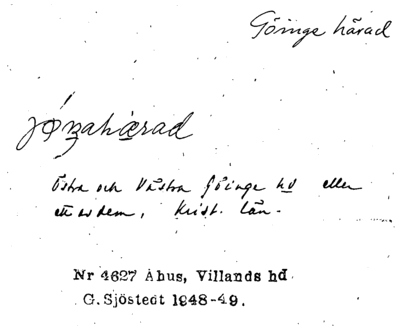 Göinge härad
jǿnzahærad
Östra och Västra Göinge hd eller
ett av dem, Krist. län.
Nr 4627 Åhus, Villands hd
G. Sjöstedt 1948-49.